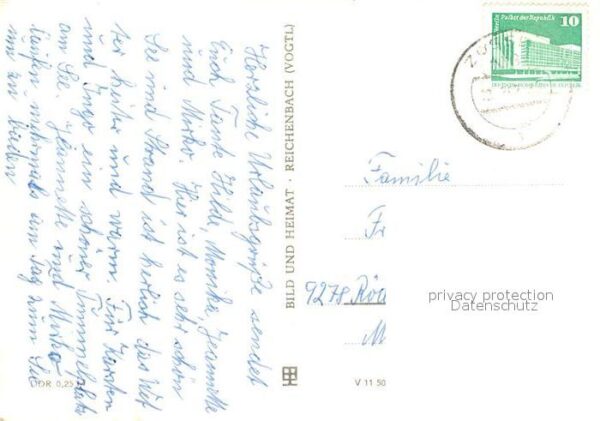 Herzliche Urlaubsgrüße sendet
Euch Tante Hilde, Monika, Jeannette
und Mirko. Hier ist es sehr schön
See und Strand ist herlich das Wet
ter heiter und warm. Für Karsten
und Ingo ein schöner Tummelplatz
am See. Jeannette und Mirko
laufen mehrmals am Tag zum See
um zu baden
DDR 0,25
BILD UND HEIMAT · REICHENBACH (VOGTL)
V 11 50
Berlin Palast der Republik
10
DEUTSCHE DEMOKRATISCHE REPUBLIK
Familie
Fr
9278
M
privacy protection
Datenschutz